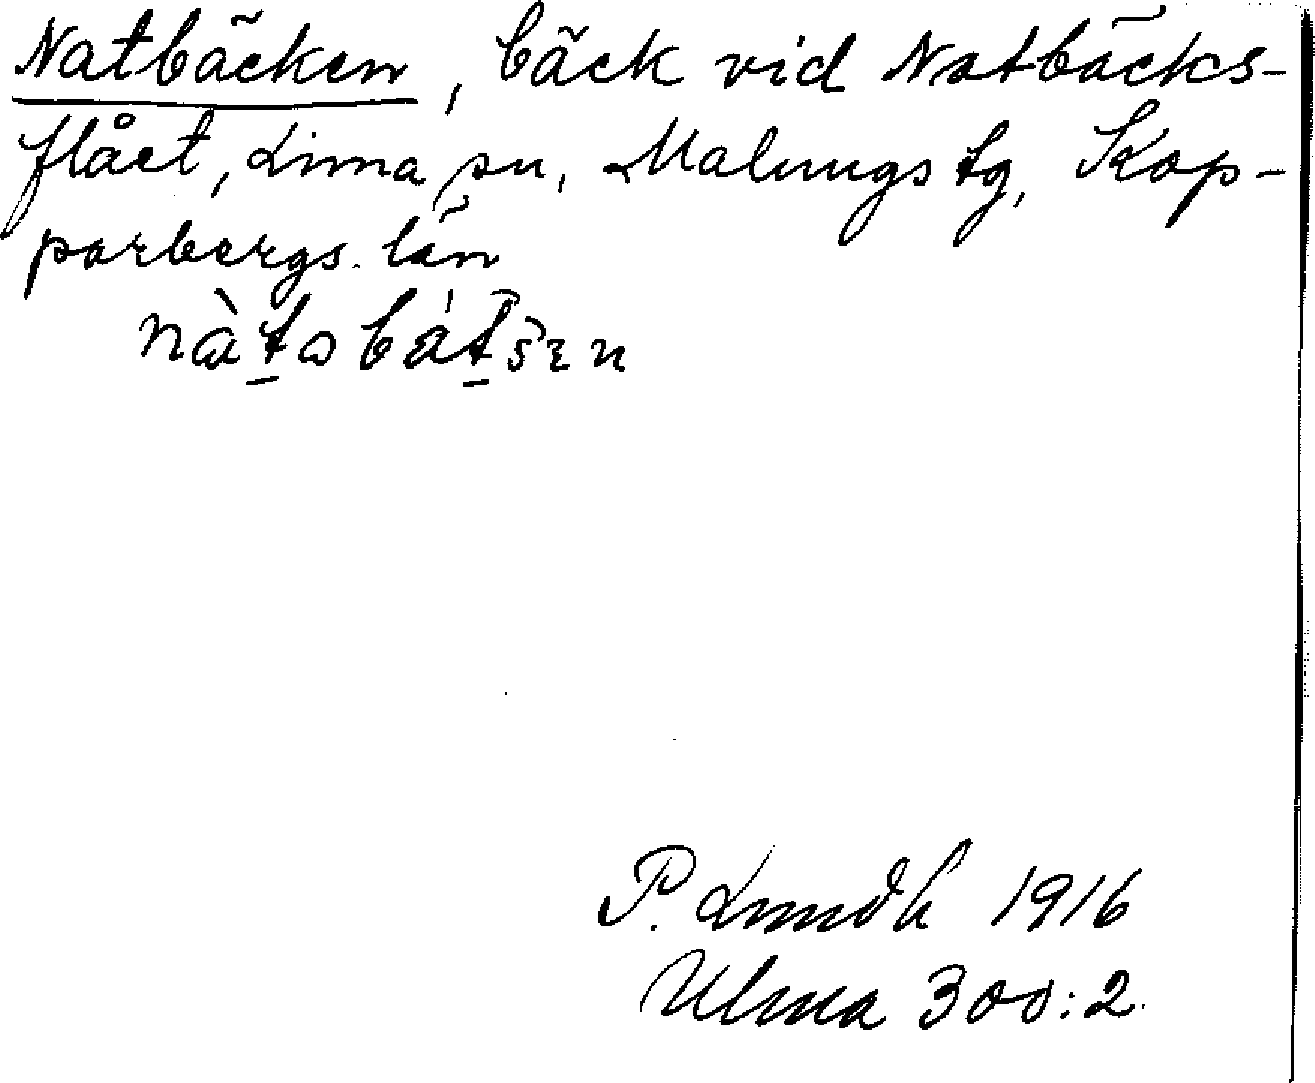 Natbäcken, bäck vid Natbäcks-
flået, Lima sn, Malungs tg, Kop-
parbergs län
P. Lundh 1916
Ulma 300:2